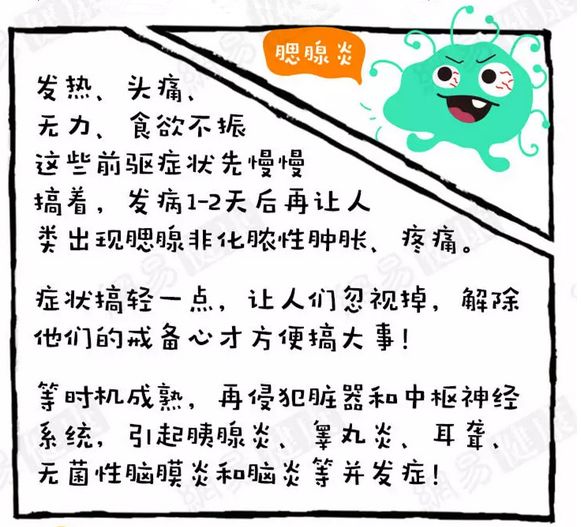 腮腺炎
发热、头痛、
无力、食欲不振
这些前驱症状先慢慢
搞着，发病1-2天后再让人
类出现腮腺非化脓性肿胀、疼痛。
症状搞轻一点，让人们忽视掉，解除
他们的戒备心才方便搞大事！
等时机成熟，再侵犯脏器和中枢神经
系统，引起胰腺炎、睾丸炎、耳聋、
无菌性脑膜炎和脑炎等并发症！